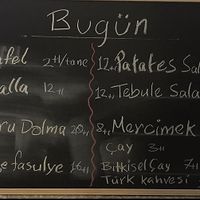 Bugün
afel 2tl/tane
alla 12tl
ru Dolma 20tl
e fasulye 16tl
12tl Patates Sal
12tl Tebule Sala
8tl Mercimek
Çay 3tl
Bitkisel Çay 7tl
Türk kahvesi